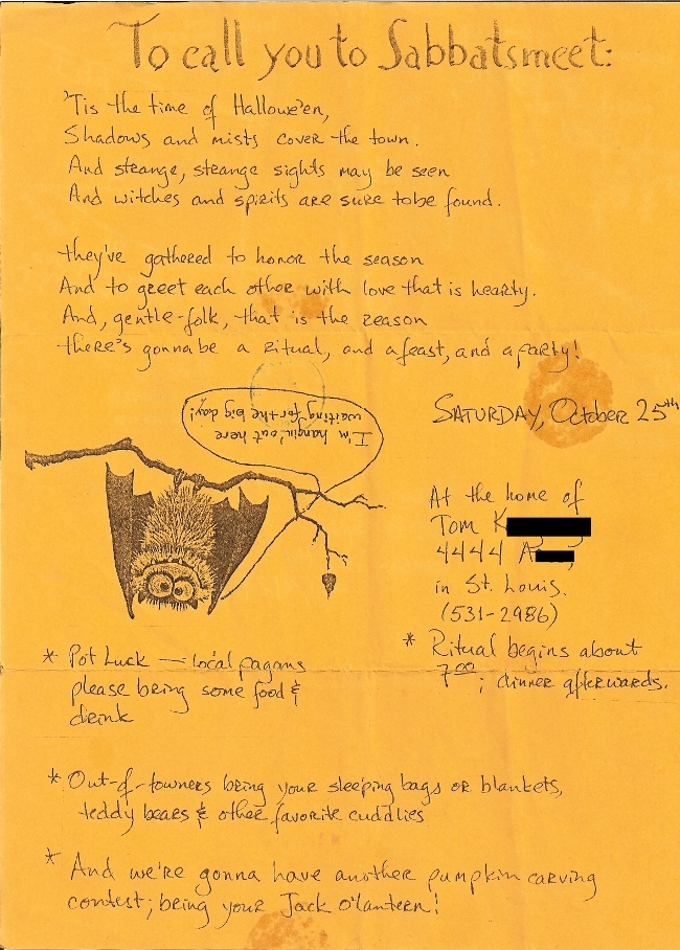 To call you to Sabbatsmeet:
'Tis the time of Hallowe'en,
Shadows and mists cover the town.
And strange, strange sights may be seen
And witches and spirits are sure to be found.
they've gathered to honor the season
And to greet each other with love that is hearty.
And, gentle-folk, that is the reason
there's gonna be a ritual, and a feast, and a party!
I'm hangin' out here
waiting for the big day!
SATURDAY, October 25th
At the home of
Tom K
4444 A
in St. Louis.
(531-2986)
* Ritual begins about
7:00; dinner afterwards.
* Pot Luck — local pagans
please bring some food &
drink
* Out-of-towners bring your sleeping bags or blankets,
teddy bears & other favorite cuddlies
* And we're gonna have another pumpkin carving
contest; bring your Jack O'lantern!